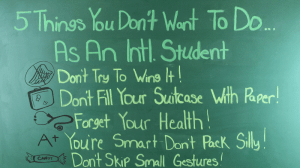 5 Things You Don't Want To Do...
As An Intl. Student
Don't Try To Wing It!
Don't Fill Your Suitcase With Paper!
Forget Your Health!
A+ You're Smart-Don't Pack Silly!
Don't Skip Small Gestures!